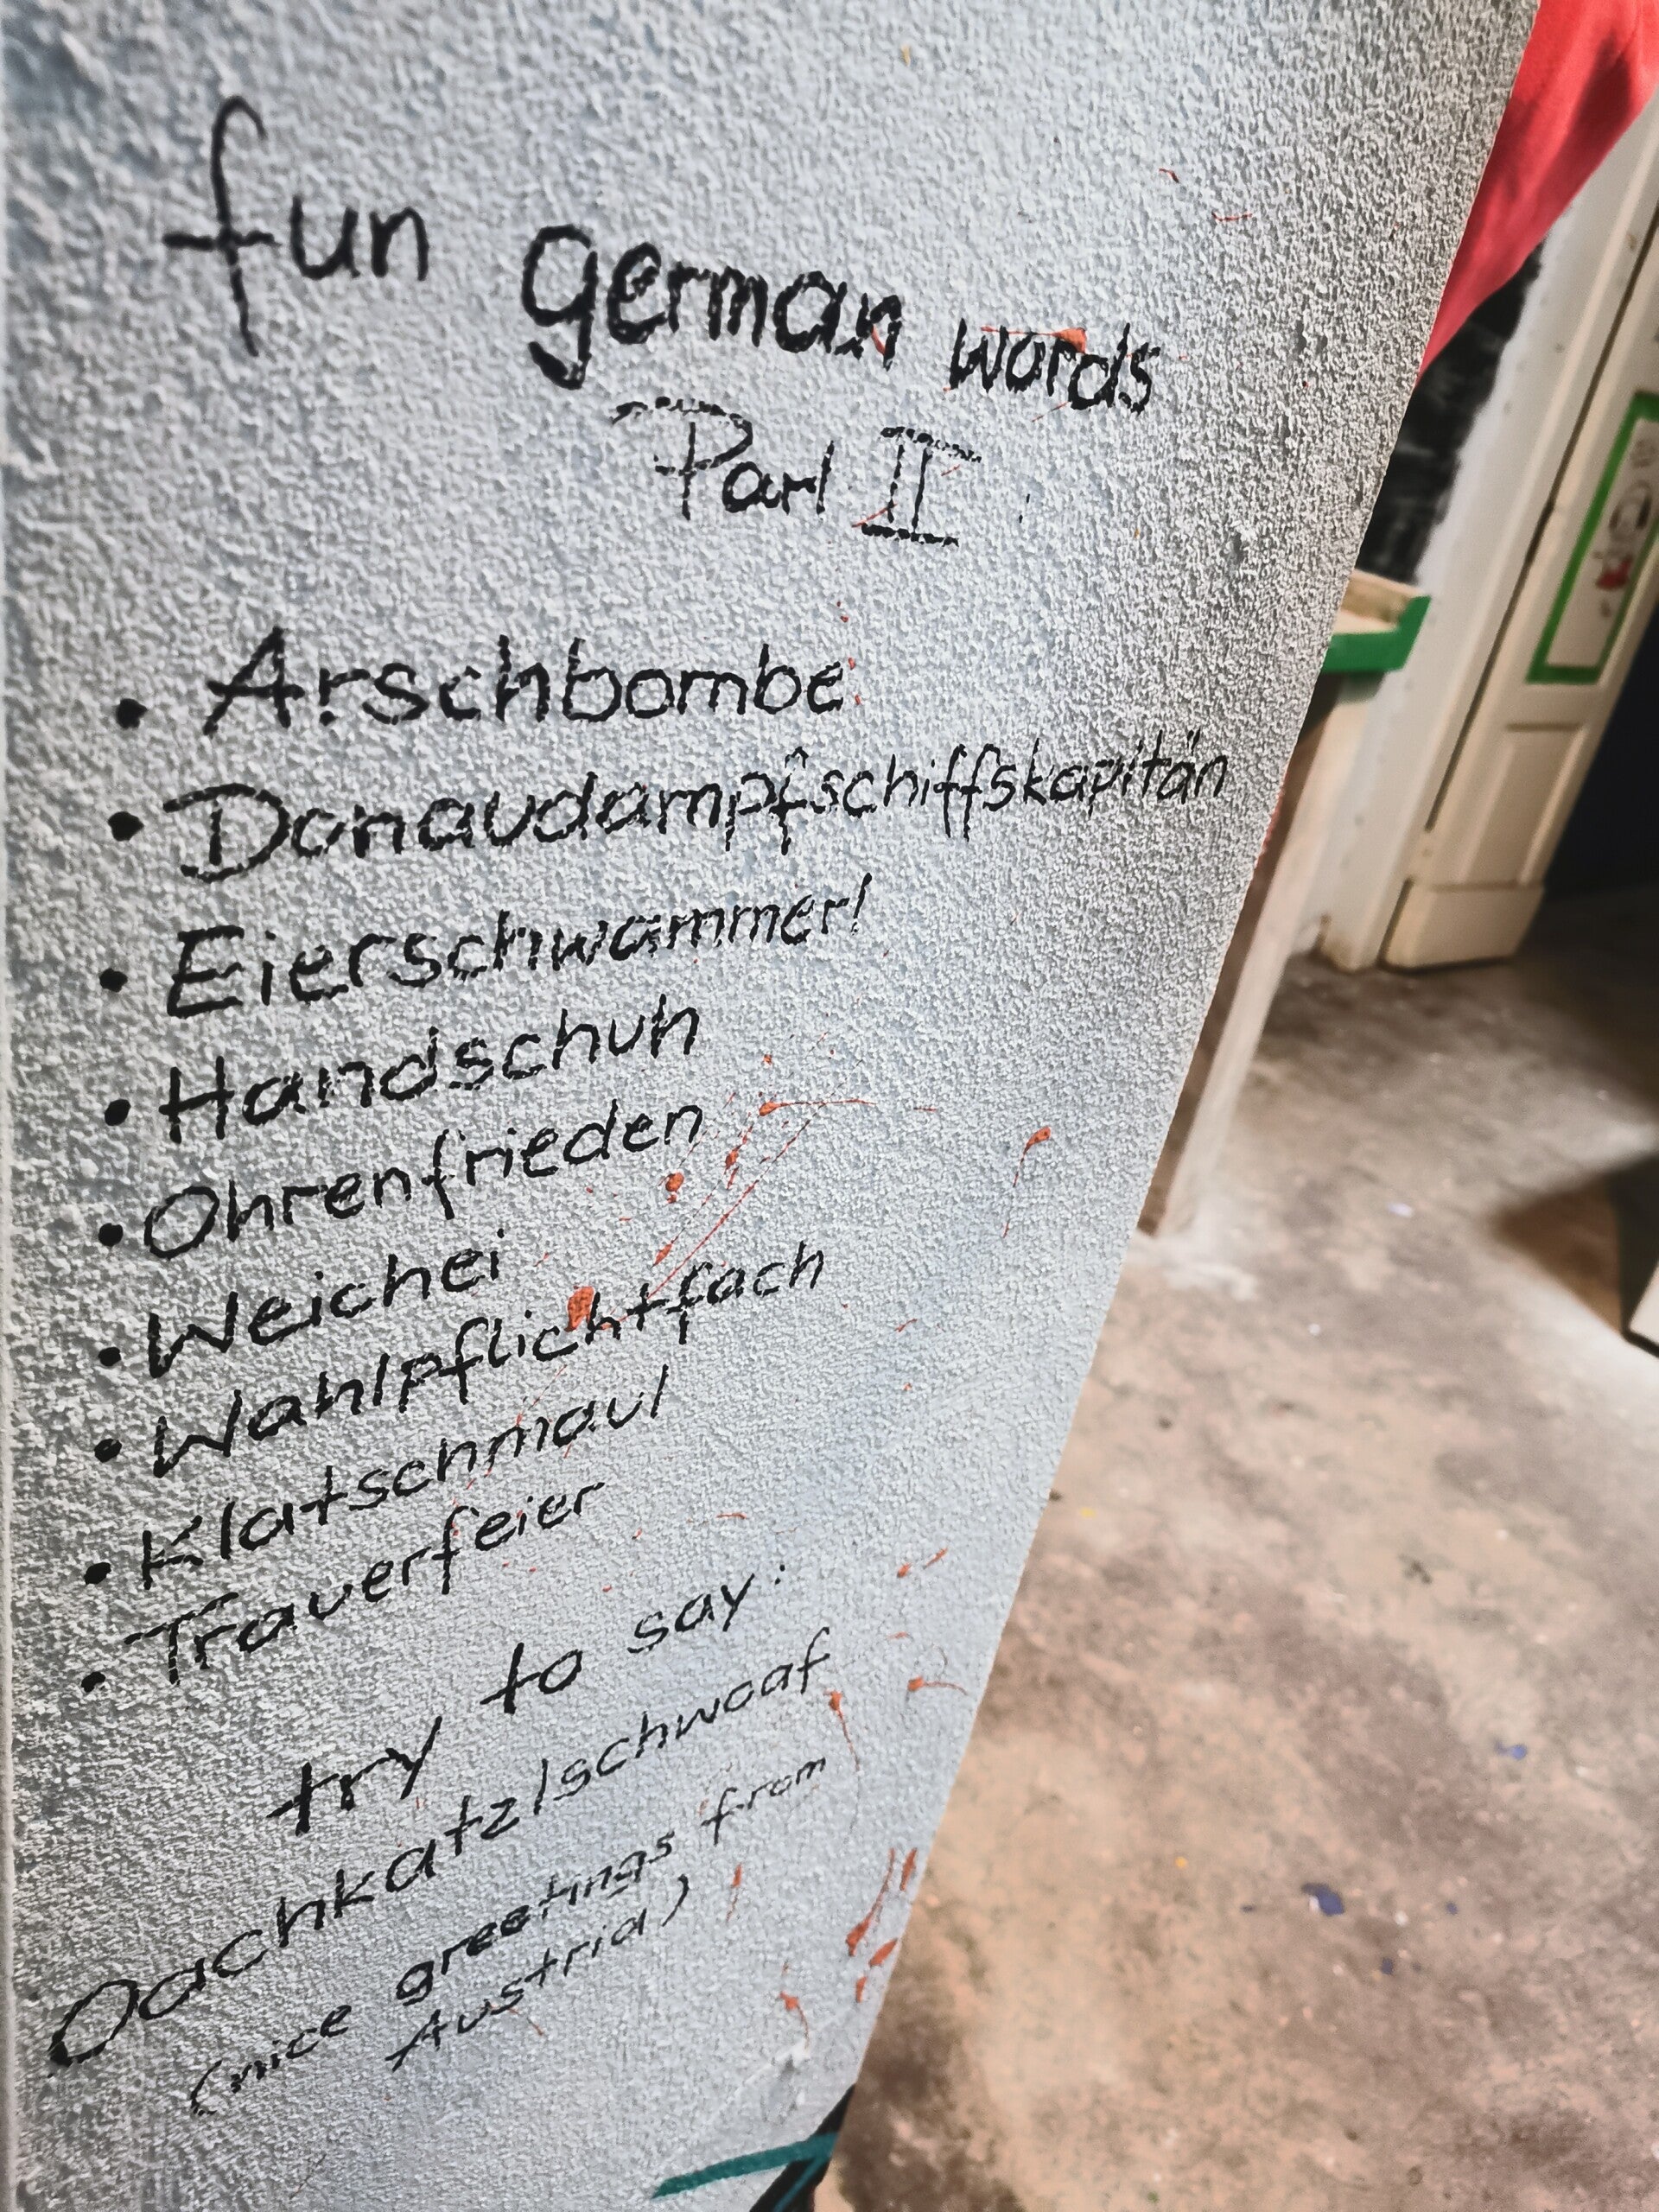 fun german words
Part II
• Arschbombe
• Donaudampfschiffskapitän
• Eierschwammerl
• Handschuh
• Ohrenfrieden
• Weichei
• Wahlpflichtfach
• Klatschmaul
• Trauerfeier
try to say:
Oachkatzlschwoaf
(nice greetings from
Austria)